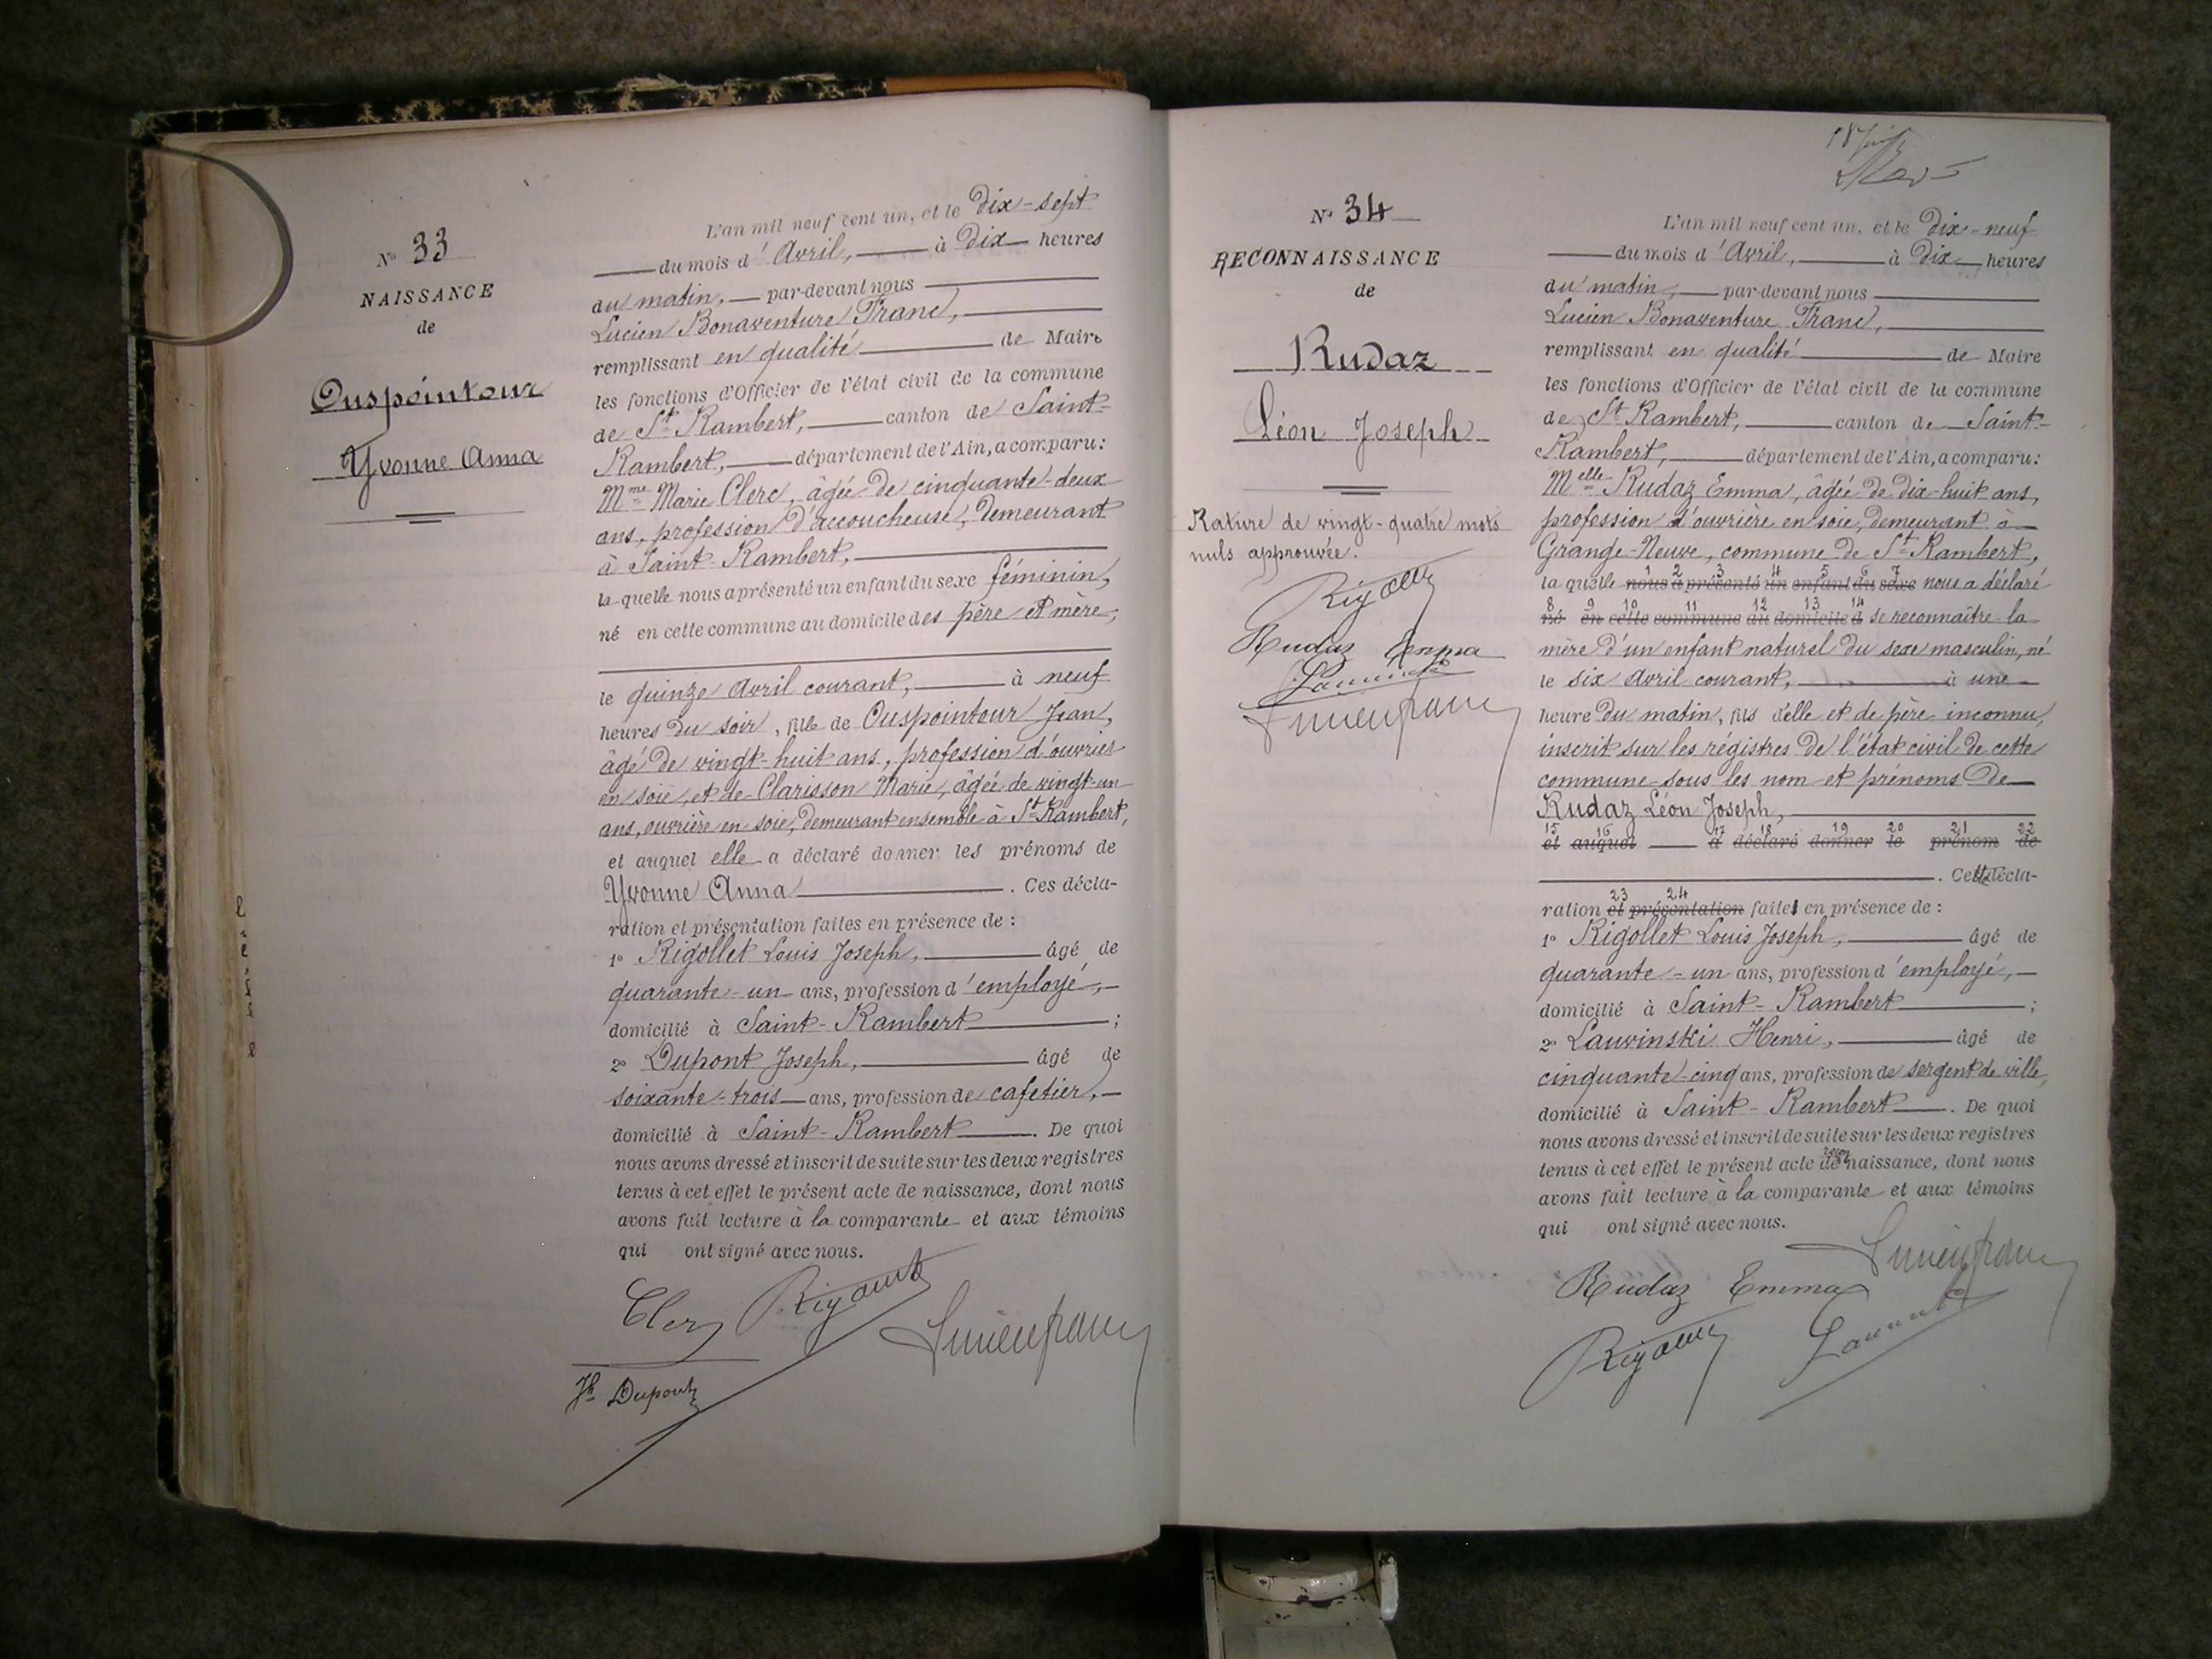 N° 33
NAISSANCE
de
Ouspointour
Yvonne Anna
L'an mil neuf cent un, et le dix-sept
du mois d'Avril, à dix heures
du matin, par-devant nous
Lucien Bonaventure Franc,
remplissant en qualité de Maire
les fonctions d'Officier de l'état civil de la commune
de St Rambert, canton de Saint-
Rambert, département de l'Ain, a comparu:
Mme Marie Clerc, âgée de cinquante-deux
ans, profession d'accoucheuse, demeurant
à Saint-Rambert,
la quelle nous a présenté un enfant du sexe féminin,
né en cette commune au domicile des père et mère,
le quinze Avril courant, à neuf
heures du soir, fille de Ouspointour Jean,
âgé de vingt-huit ans, profession d'ouvrier
en soie, et de Clarisson Marie, âgée de vingt-un
ans, ouvrière en soie, demeurant ensemble à St Rambert,
et auquel elle a déclaré donner les prénoms de
Yvonne Anna. Ces décla-
ration et présentation faites en présence de :
1° Rigollet Louis Joseph, âgé de
quarante-un ans, profession d'employé,
domicilié à Saint-Rambert ;
2° Dupont Joseph, âgé de
soixante-trois ans, profession de cafetier,
domicilié à Saint-Rambert. De quoi
nous avons dressé et inscrit de suite sur les deux registres
tenus à cet effet le présent acte de naissance, dont nous
avons fait lecture à la comparante et aux témoins
qui ont signé avec nous.
Clerc
Jh Dupont
N° 34
RECONNAISSANCE
de
Rudaz
Léon Joseph
Rature de vingt-quatre mots
nuls approuvée.
Rudaz Emma
L'an mil neuf cent un, et le dix-neuf
du mois d'Avril, à dix heures
du matin, par-devant nous
Lucien Bonaventure Franc,
remplissant en qualité de Maire
les fonctions d'Officier de l'état civil de la commune
de St Rambert, canton de Saint-
Rambert, département de l'Ain, a comparu:
Melle Rudaz Emma, âgée de dix-huit ans,
profession d'ouvrière en soie, demeurant à
Grange-Neuve, commune de St Rambert,
1 2 3 4 5 6 7
la quelle nous a présenté un enfant du sexe nous a déclaré
8 9 10 11 12 13 14
né en cette commune au domicile d se reconnaître la
mère d'un enfant naturel du sexe masculin, né
le six Avril courant, à une
heure du matin, fils d'elle et de père inconnu,
inscrit sur les régistres de l'état civil de cette
commune sous les nom et prénoms de
Rudaz Léon Joseph,
15 16 17 18 19 20 21 22
et auquel a déclaré donner le prénom de
. Cette décla-
23 24
ration et présentation faite en présence de :
1° Rigollet Louis Joseph, âgé de
quarante-un ans, profession d'employé,
domicilié à Saint-Rambert ;
2° Lauvinski Henri, âgé de
cinquante-cinq ans, profession de sergent de ville,
domicilié à Saint-Rambert. De quoi
nous avons dressé et inscrit de suite sur les deux registres
tenus à cet effet le présent acte de naissance, dont nous
avons fait lecture à la comparante et aux témoins
qui ont signé avec nous.
Rudaz Emma